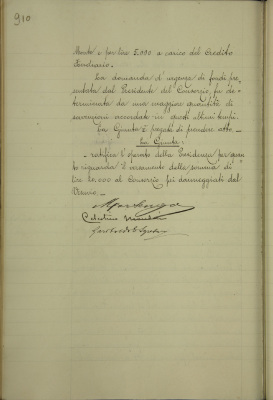 910
Monte e per lire 5.000 a carico del Credito
Fondiario.
La domanda d'urgenza di fondi pre-
sentata dal Presidente del Consorzio, fu de-
terminata da una maggior quantità di
sovvenzioni accordate in questi ultimi tempi.
La Giunta è pregata di prendere atto.
La Giunta
ratifica l'operato della Presidenza per quan-
to riguarda il versamento della somma di
lire 20.000 al Consorzio fra danneggiati dal
Vesuvio.